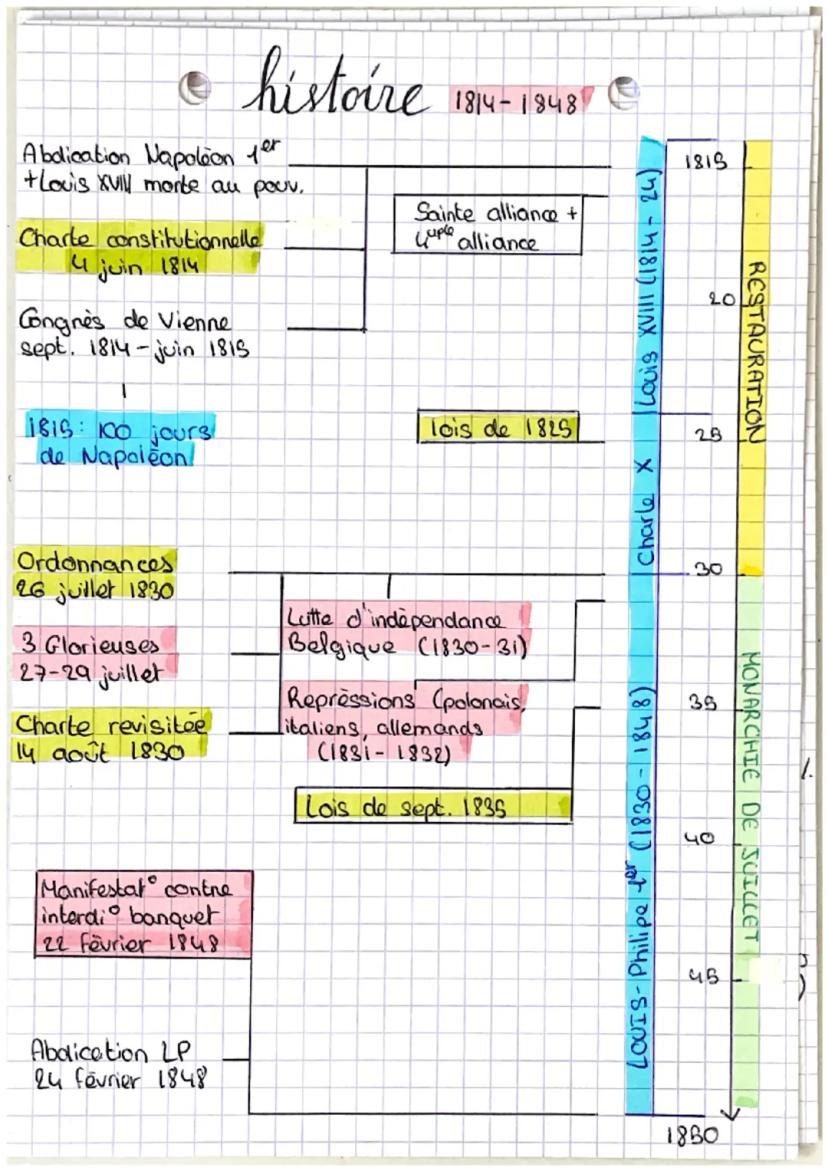 histoire 1814-1848
Abdication Napoléon 1er
+Louis XVIII monte au pouv.
Charte constitutionnelle
4 juin 1814
Congrès de Vienne
sept. 1814 - juin 1815
1815: 100 jours
de Napoléon
Sainte alliance +
4uple alliance
lois de 1825
Ordonnances
26 juillet 1830
3 Glorieuses
27-29 juillet
Charte revisitée
14 août 1830
Lutte d'indépendance
Belgique (1830-31)
Représsions (polonais,
italiens, allemands
(1831-1832)
Lois de sept. 1835
Manifestat° contre
interdi° banquet
22 février 1848
Abdication LP
24 février 1848
Louis XVIII (1814-24)
Charle X
LOUIS-Philipe 1er (1830-1848)
1815
20
25
30
35
40
45
1850
RESTAURATION
MONARCHIE DE JUILLET